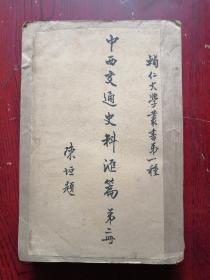 輔仁大學叢書第一種
中西交通史料匯篇 第二冊
陳垣題